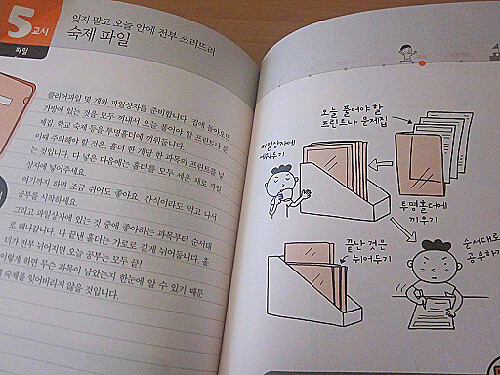 5교시
파일
잊지 말고 오늘 안에 전부 쓰러뜨려
숙제 파일
클리어파일 몇 개와 파일상자를 준비합니다. 집에 돌아오면
가방에 있는 것을 모두 꺼내서 오늘 풀어야 할 프린트나 문
제집, 학교 숙제 등을 투명홀더에 끼워둡니다.
이때 주의해야 할 것은, 홀더 한 개당 한 과목의 프린트를 넣
는 것입니다. 다 넣은 다음에는 홀더를 모두 세운 채로 파일
상자에 넣어주세요.
여기까지 하면 조금 쉬어도 좋아요. 간식이라도 먹고 나서
공부를 시작하세요.
그리고 파일상자에 있는 것 중에 좋아하는 과목부터 순서대
로 해나갑니다. 다 끝낸 홀더는 가로로 길게 뉘어둡니다. 홀
더가 전부 뉘어지면 오늘 공부는 모두 끝!
이렇게 하면 무슨 과목이 남았는지 한눈에 알 수 있기 때문
에 숙제를 잊어버리지 않을 것입니다.
오늘 풀어야 할
프린트나 문제집
파일상자에
세워두기
투명홀더에
끼우기
끝난 것은
뉘어두기
순서대로
공부하기